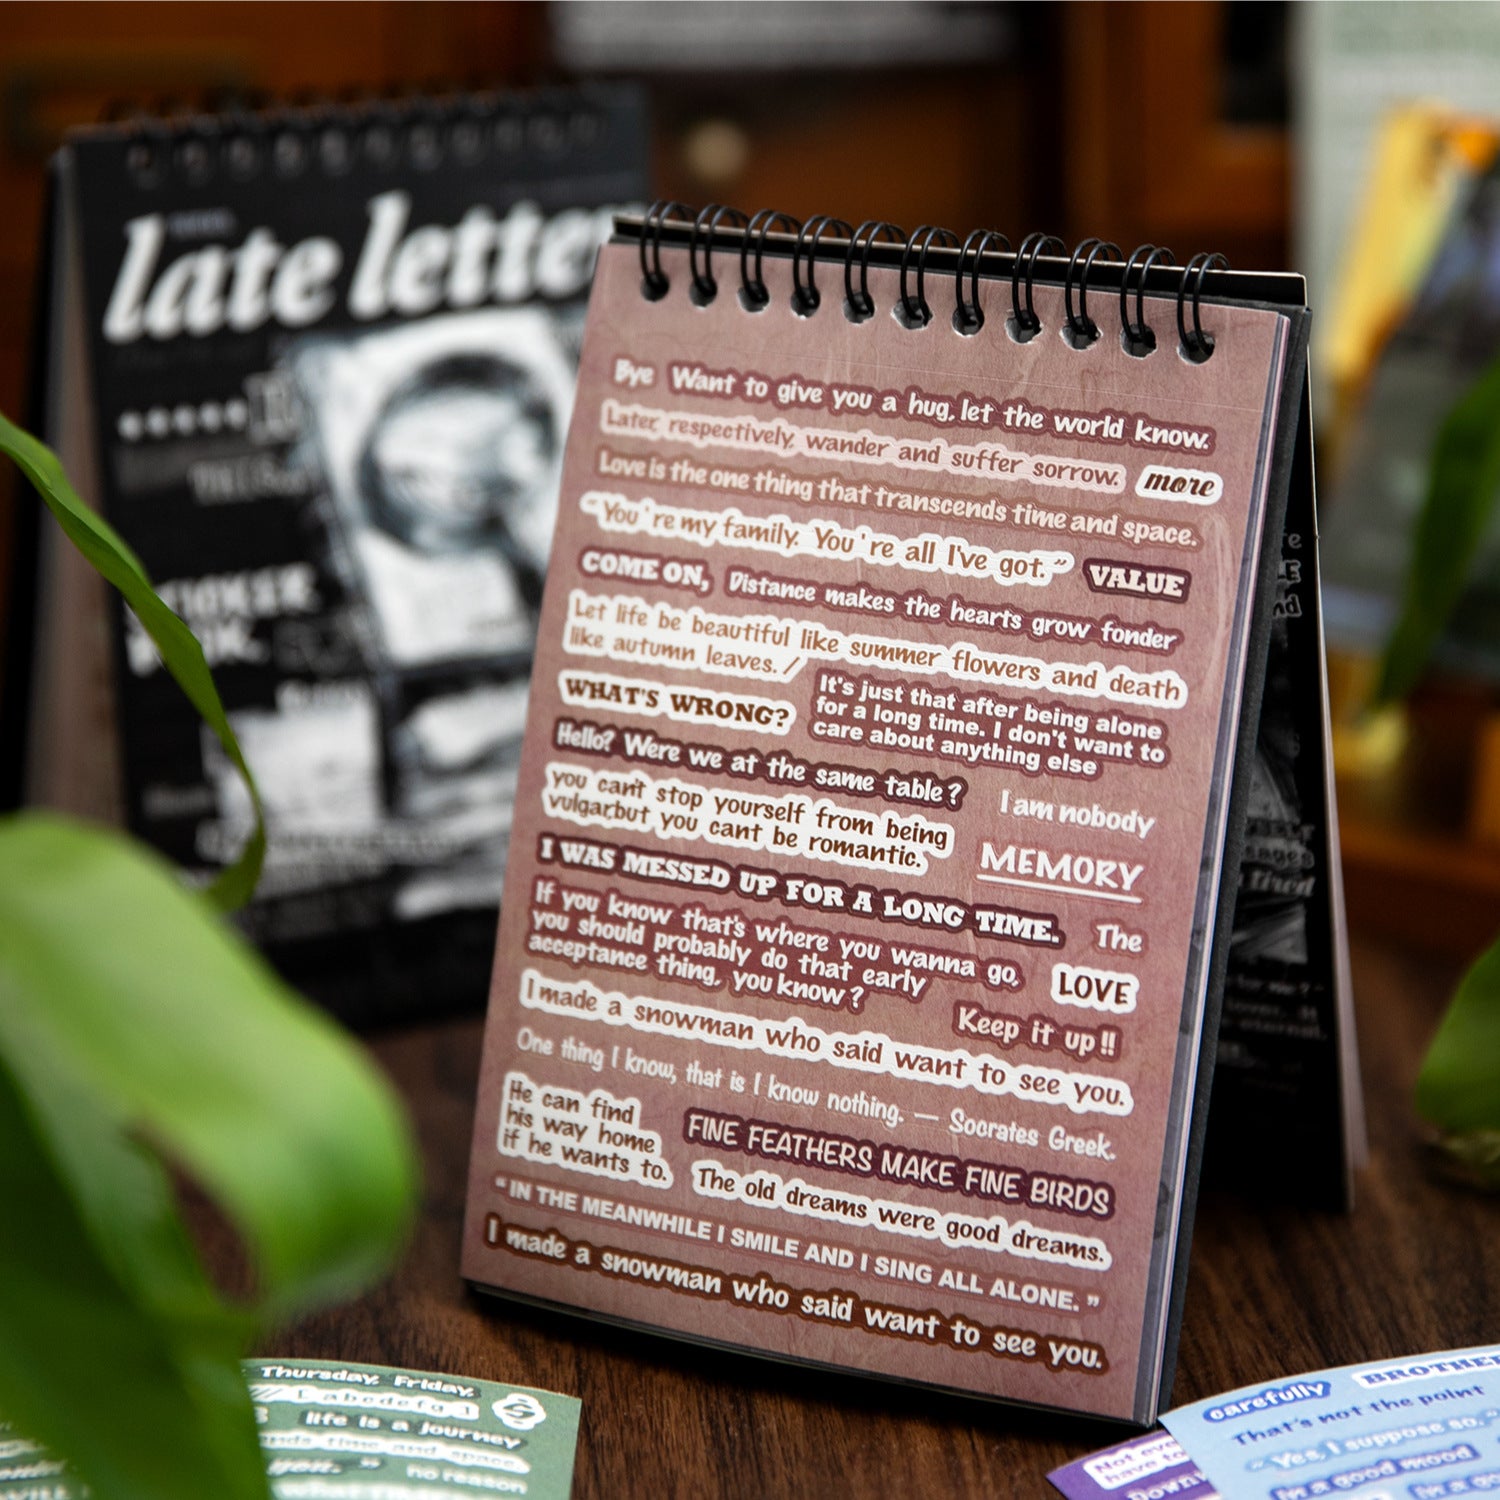 late letter
Bye Want to give you a hug, let the world know.
Later, respectively, wander and suffer sorrow. more
Love is the one thing that transcends time and space.
"You're my family. You're all I've got." VALUE
COME ON, Distance makes the hearts grow fonder
Let life be beautiful like summer flowers and death
like autumn leaves. /
WHAT'S WRONG?
It's just that after being alone
for a long time. I don't want to
care about anything else
Hello? Were we at the same table?
I am nobody
you can't stop yourself from being
vulgar,but you cant be romantic.
MEMORY
I WAS MESSED UP FOR A LONG TIME.
The
If you know that's where you wanna go,
you should probably do that early
acceptance thing, you know?
LOVE
Keep it up!!
I made a snowman who said want to see you.
One thing I know, that is I know nothing. — Socrates Greek.
He can find
his way home
if he wants to.
FINE FEATHERS MAKE FINE BIRDS
The old dreams were good dreams.
"IN THE MEANWHILE I SMILE AND I SING ALL ALONE."
I made a snowman who said want to see you.
Thursday. Friday.
life is a journey
time and space.
no reason
carefully
That's not the point
"Yes, I suppose so."
in a good mood